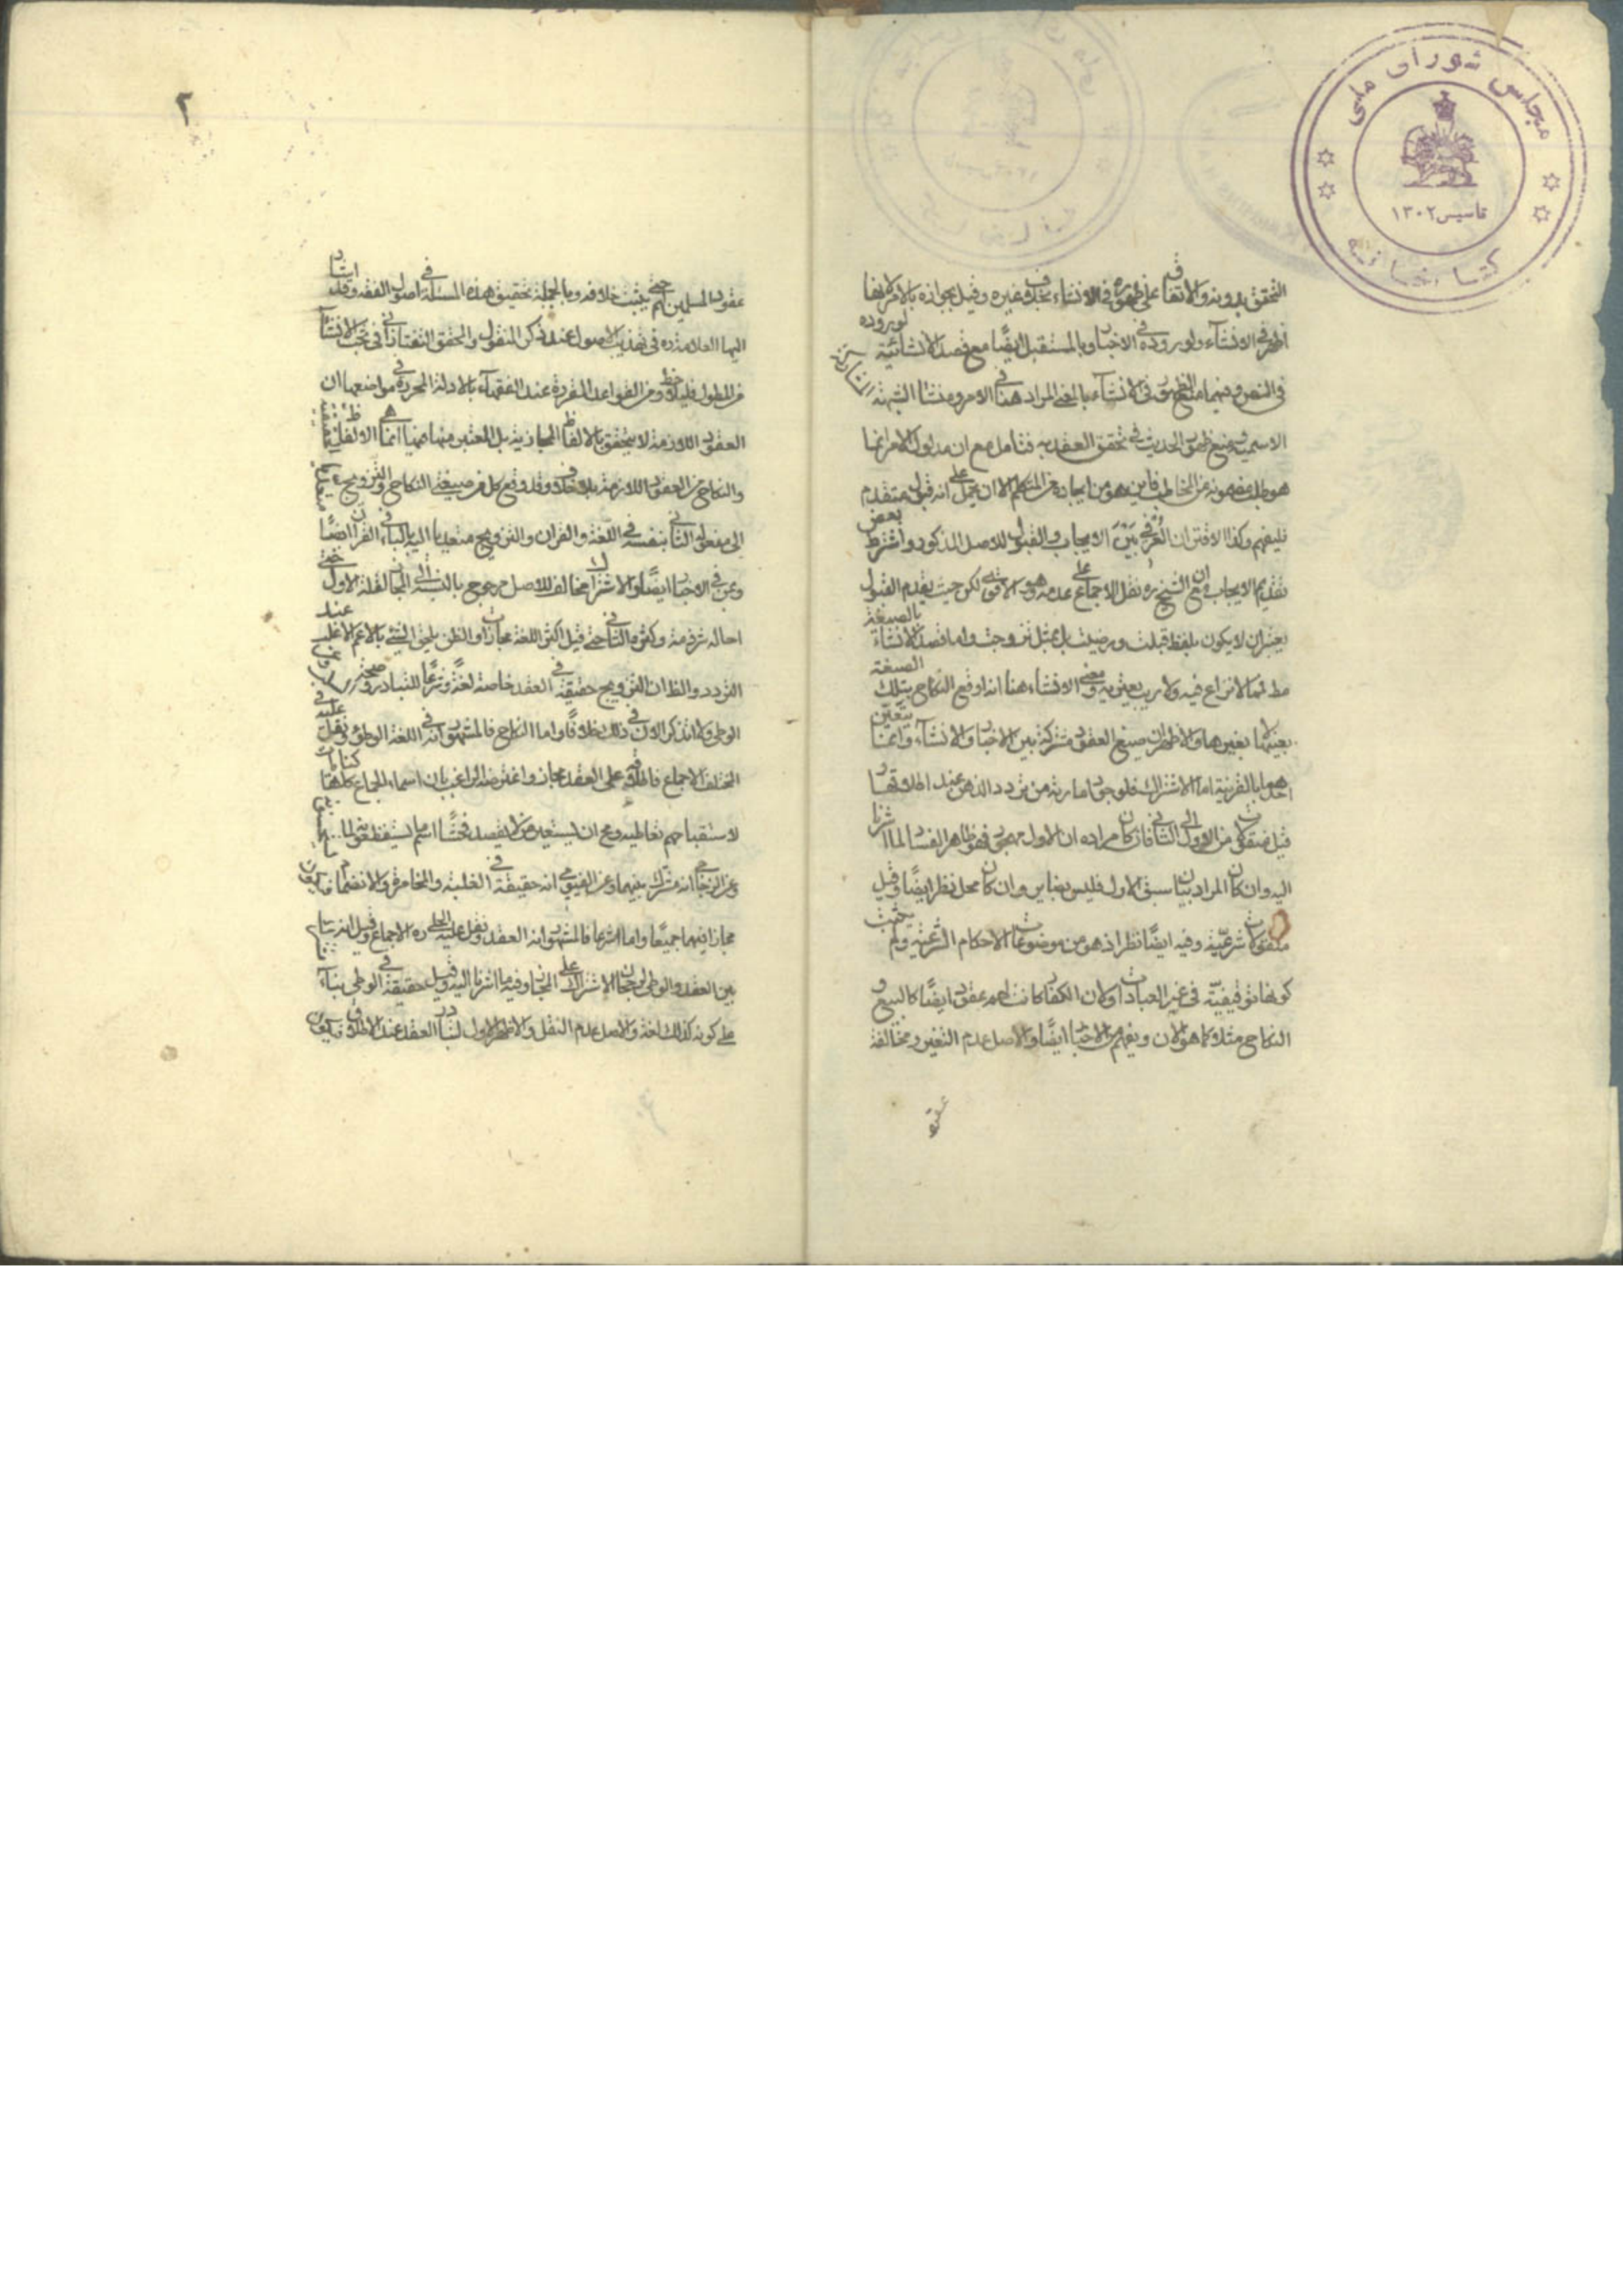 مجلس شورای ملی
تاسیس ۱۳۰۲
کتابخانه
التحقق بدونه والاتفاق على ظهوره في الانشاء بخلاف غيره وقيل بجوازه بالامر لانها
اظهر في الانشاء ولوروده في الاخبار وبالمستقبل ايضا مع قصد الانشائية لوروده
في النص وفيهما منع الظهور في الانشاء بالمعنى المراد هنا في الامر ومنشا الشبهة
الاسمية ومنع ظهور الحديث في تحقق العقد به فتامل مع ان مدلول الامر انما
هو طلب مفهومه من المخاطب فاين هو من ايجاده من المتكلم الا ان يحمل على انه قبول متقدم
فليفهم وكذا الاقتران العرفي بين الايجاب والقبول للاصل المذكور واشترط بعض
تقديم الايجاب مع ان الشيخ ره نقل الاجماع على عدمه وهو الاقوى لكن حيث يقدم القبول
يعتبر ان لا يكون بلفظ قبلت ورضيت بل بمثل تزوجت واما قصد الانشاء بالصيغة
مما لا نزاع فيه ولا ريب يعتريه ومعنى الانشاء هنا انه اوقع النكاح بتلك الصيغة
بعينها لا بغيرها والاظهر ان صيغ العقود مشتركة بين الاخبار والانشاء وانما يتعين
احدهما بالقرينة اما الاشتراك فلوجود امارته من تردد الذهن عند اطلاقها
قيل منقولات من الاول الى الثاني فان كان مراده ان الاول مهجور فهو ظاهر الفساد لما اشرنا
اليه وان كان المراد بيان سبق الاول فليس بضاير وان كان محل نظر ايضا وقيل
منقولات شرعية وفيه ايضا نظر اذ هو من موضوعات الاحكام الشرعية ولم يثبت
كونها توقيفية في غير العبادات ولان الكفار كانت لهم عقود ايضا كالبيع و
النكاح مثلا كما هو الان ويفهم من الاخبار ايضا والاصل عدم التغير ومخالفة
عقود
۲
عقود المسلمين لهم حتى يثبت خلافه وبالجملة تحقيق هذه المسئلة في اصول الفقه وقد اشار
اليها العلامة ره في تهذيب الاصول عند ذكر المنقول والمحقق التفتازاني في بحث الانشاء
من المطول فليلاحظ ومن القواعد المقررة عند الفقهاء بالادلة المحررة في مواضعها ان
العقود اللازمة لا يتحقق بالالفاظ المجازية بل المعتبر منها هنا انما هي الالفاظ
والنكاح من العقود اللازمة بلا خلاف وقد وقع كل من صيغة النكاح والتزويج
الى مفعوله الثاني بنفسه في اللغة والقران والتزويج متعديا اليه بالباء في القران ايضا
وبمن في الاخبار ايضا والاشتراك مخالف للاصل مرجوح بالنسبة الى المجاز لقلة الاول
احاله شرذمة وكثرة الثاني حتى قيل اكثر اللغة مجازات والظن يلحق الشيء بالاعم الاغلب عند
التردد والظ ان التزويج حقيقة في العقد خاصة لغة وشرعا للتبادر وصحة
الوطي ولا اتذكر الان في ذلك خلافا واما النكاح فالمشهور انه في اللغة الوطي ونقل عليه في
المختلف الاجماع فاطلاقه على العقد مجاز واعترضه الراغب بان اسماء الجماع كلها كنايات
لاستقباحهم تعاطيه ومح ان يستعير من لا يقصد فحشا اسم ما يستفظعونه لما
وعن الزجاج انه مشترك بينهما وعن الفيومي انه حقيقة في الغلبة والمخامرة والانضمام فيكون
مجازا فيهما جميعا واما شرعا فالمشهور انه العقد ونقل عليه الحلي ره الاجماع وقيل انه
بين العقد والوطي لرجحان الاشتراك على المجاز وفيه ما اشرنا اليه وقيل حقيقة في الوطي بناء
على كونه كذلك لغة والاصل عدم النقل والاظهر الاول لتبادر العقد عند الاطلاق فيكون